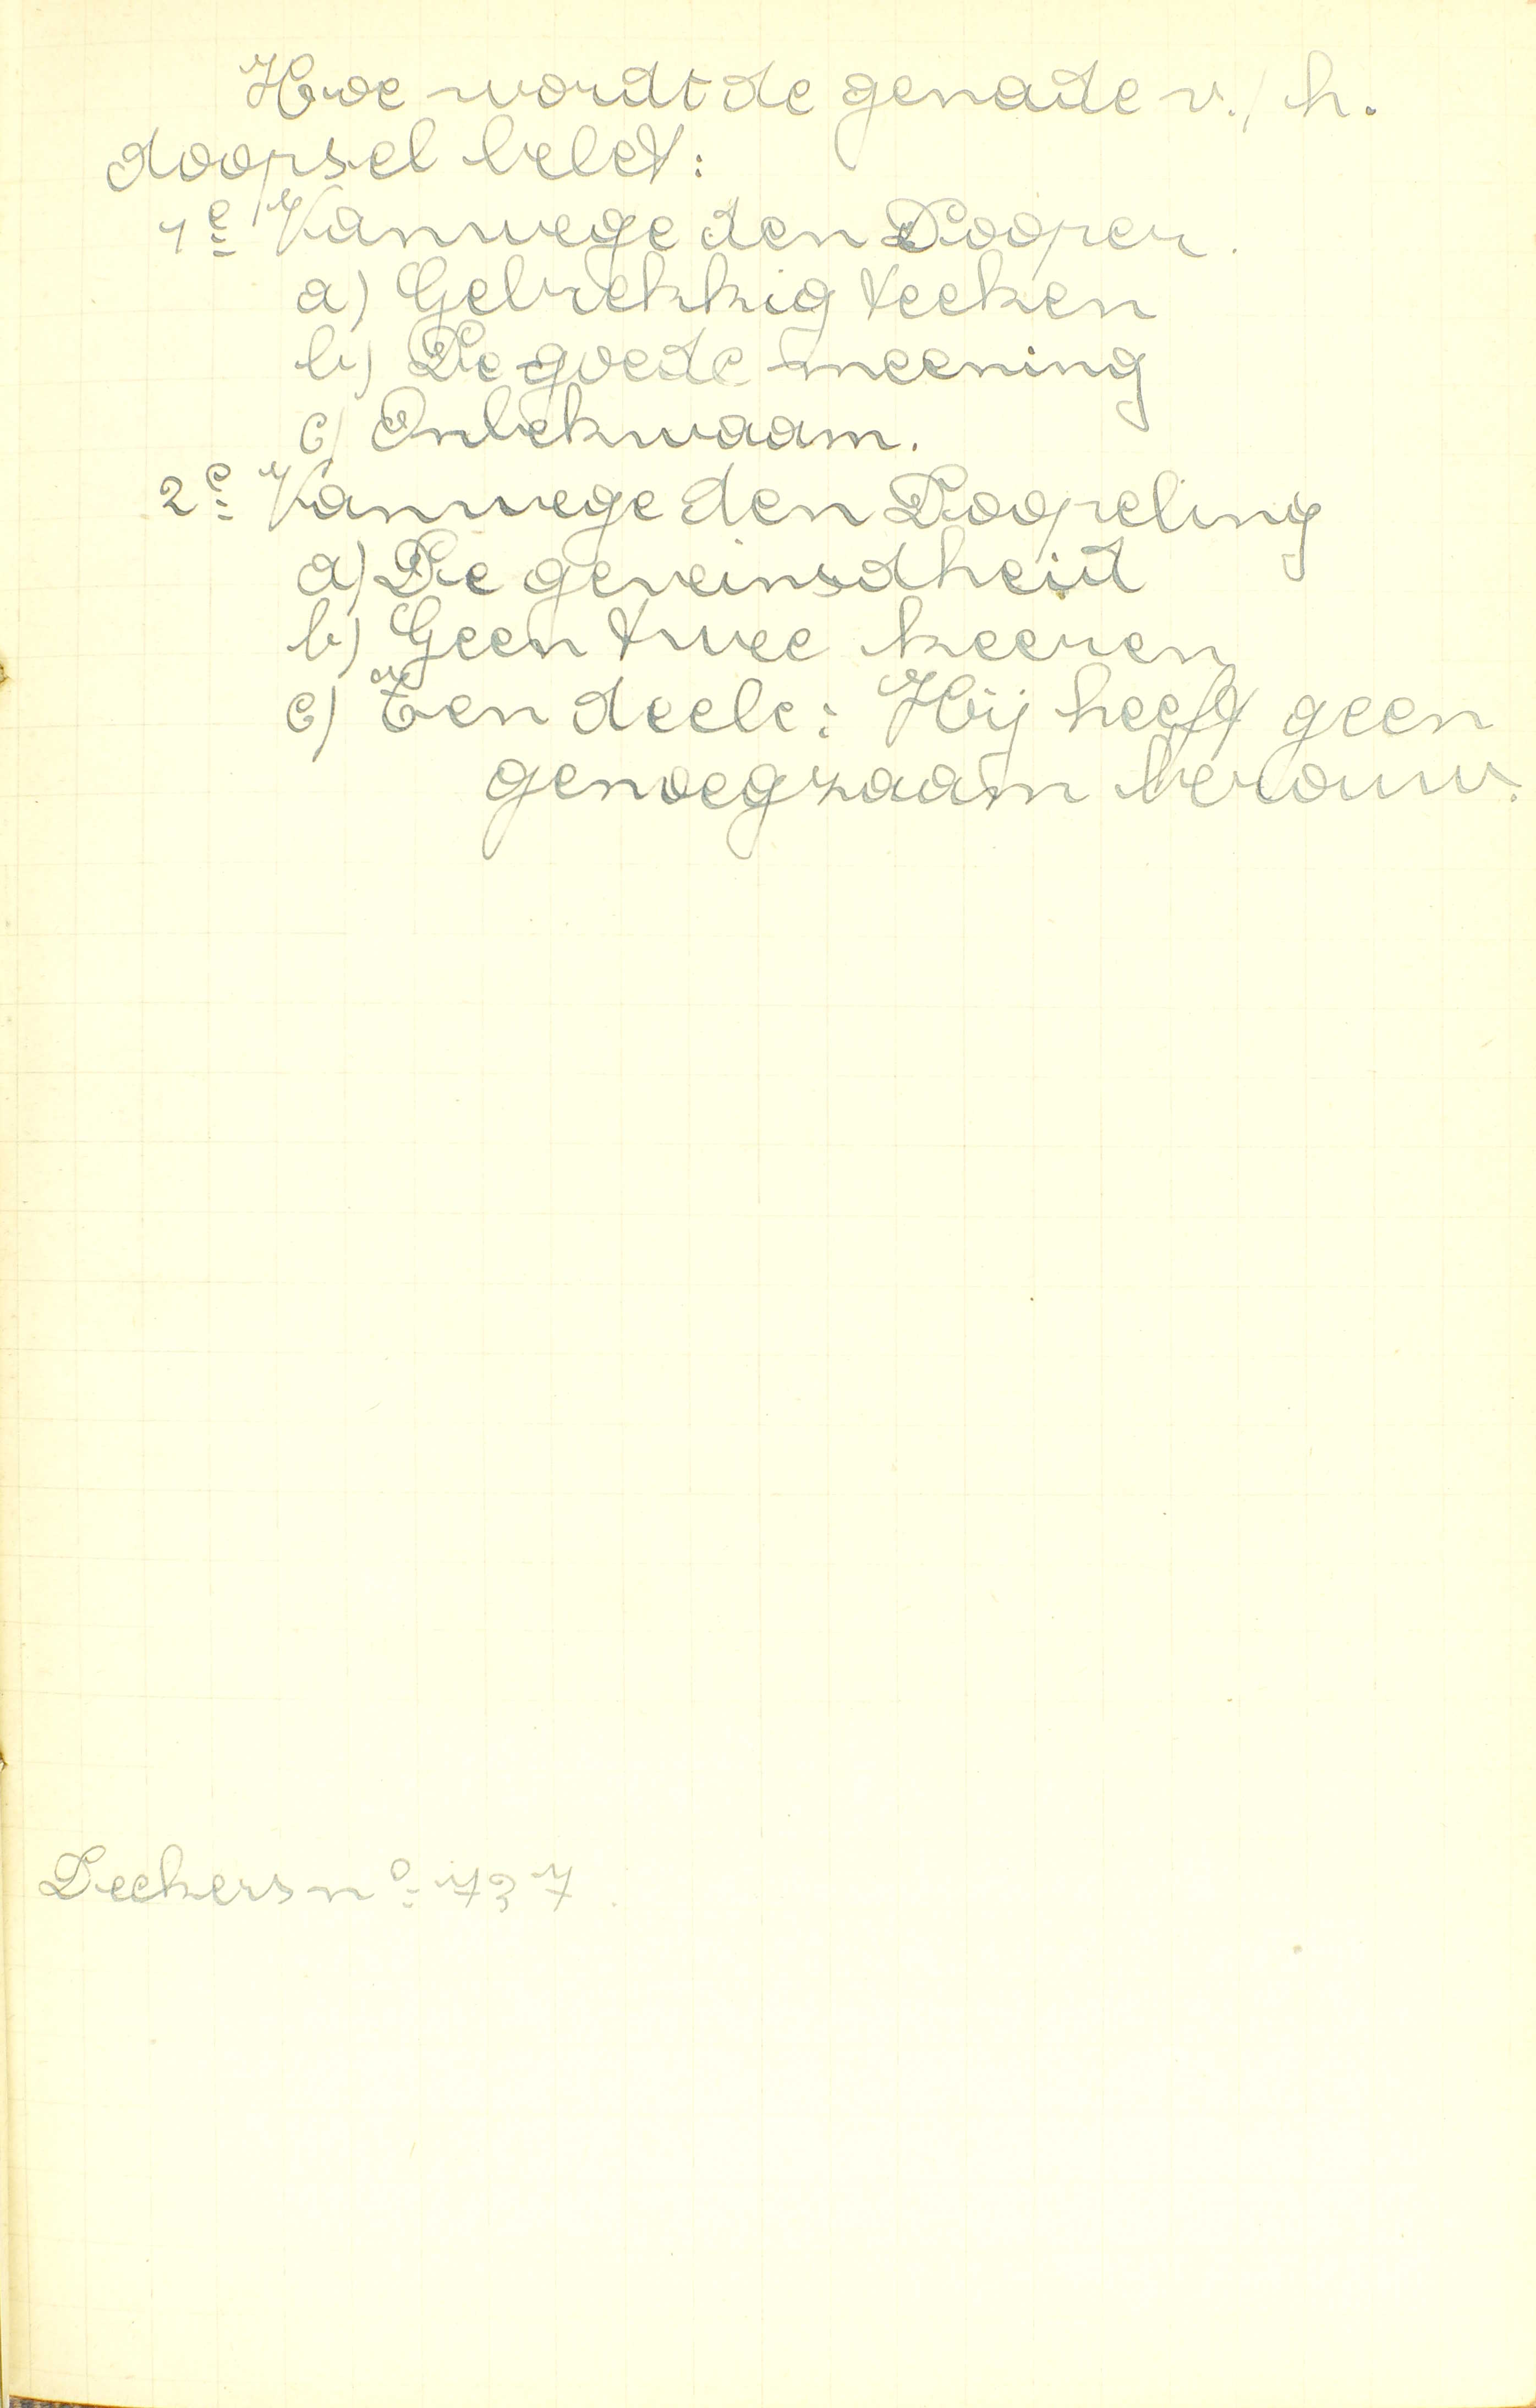 Hoe wordt de genade v./h.
doopsel belet:
1e Vanwege den Dooper.
a) Gebrekkig teeken
b) De goede meening
c) Onbekwaam.
2e Vanwege den Doopeling
a) De geveinsdheid
b) Geen twee keeren
c) Ten deele: Hij heeft geen
genoegzaam berouw.
Deckers no 737